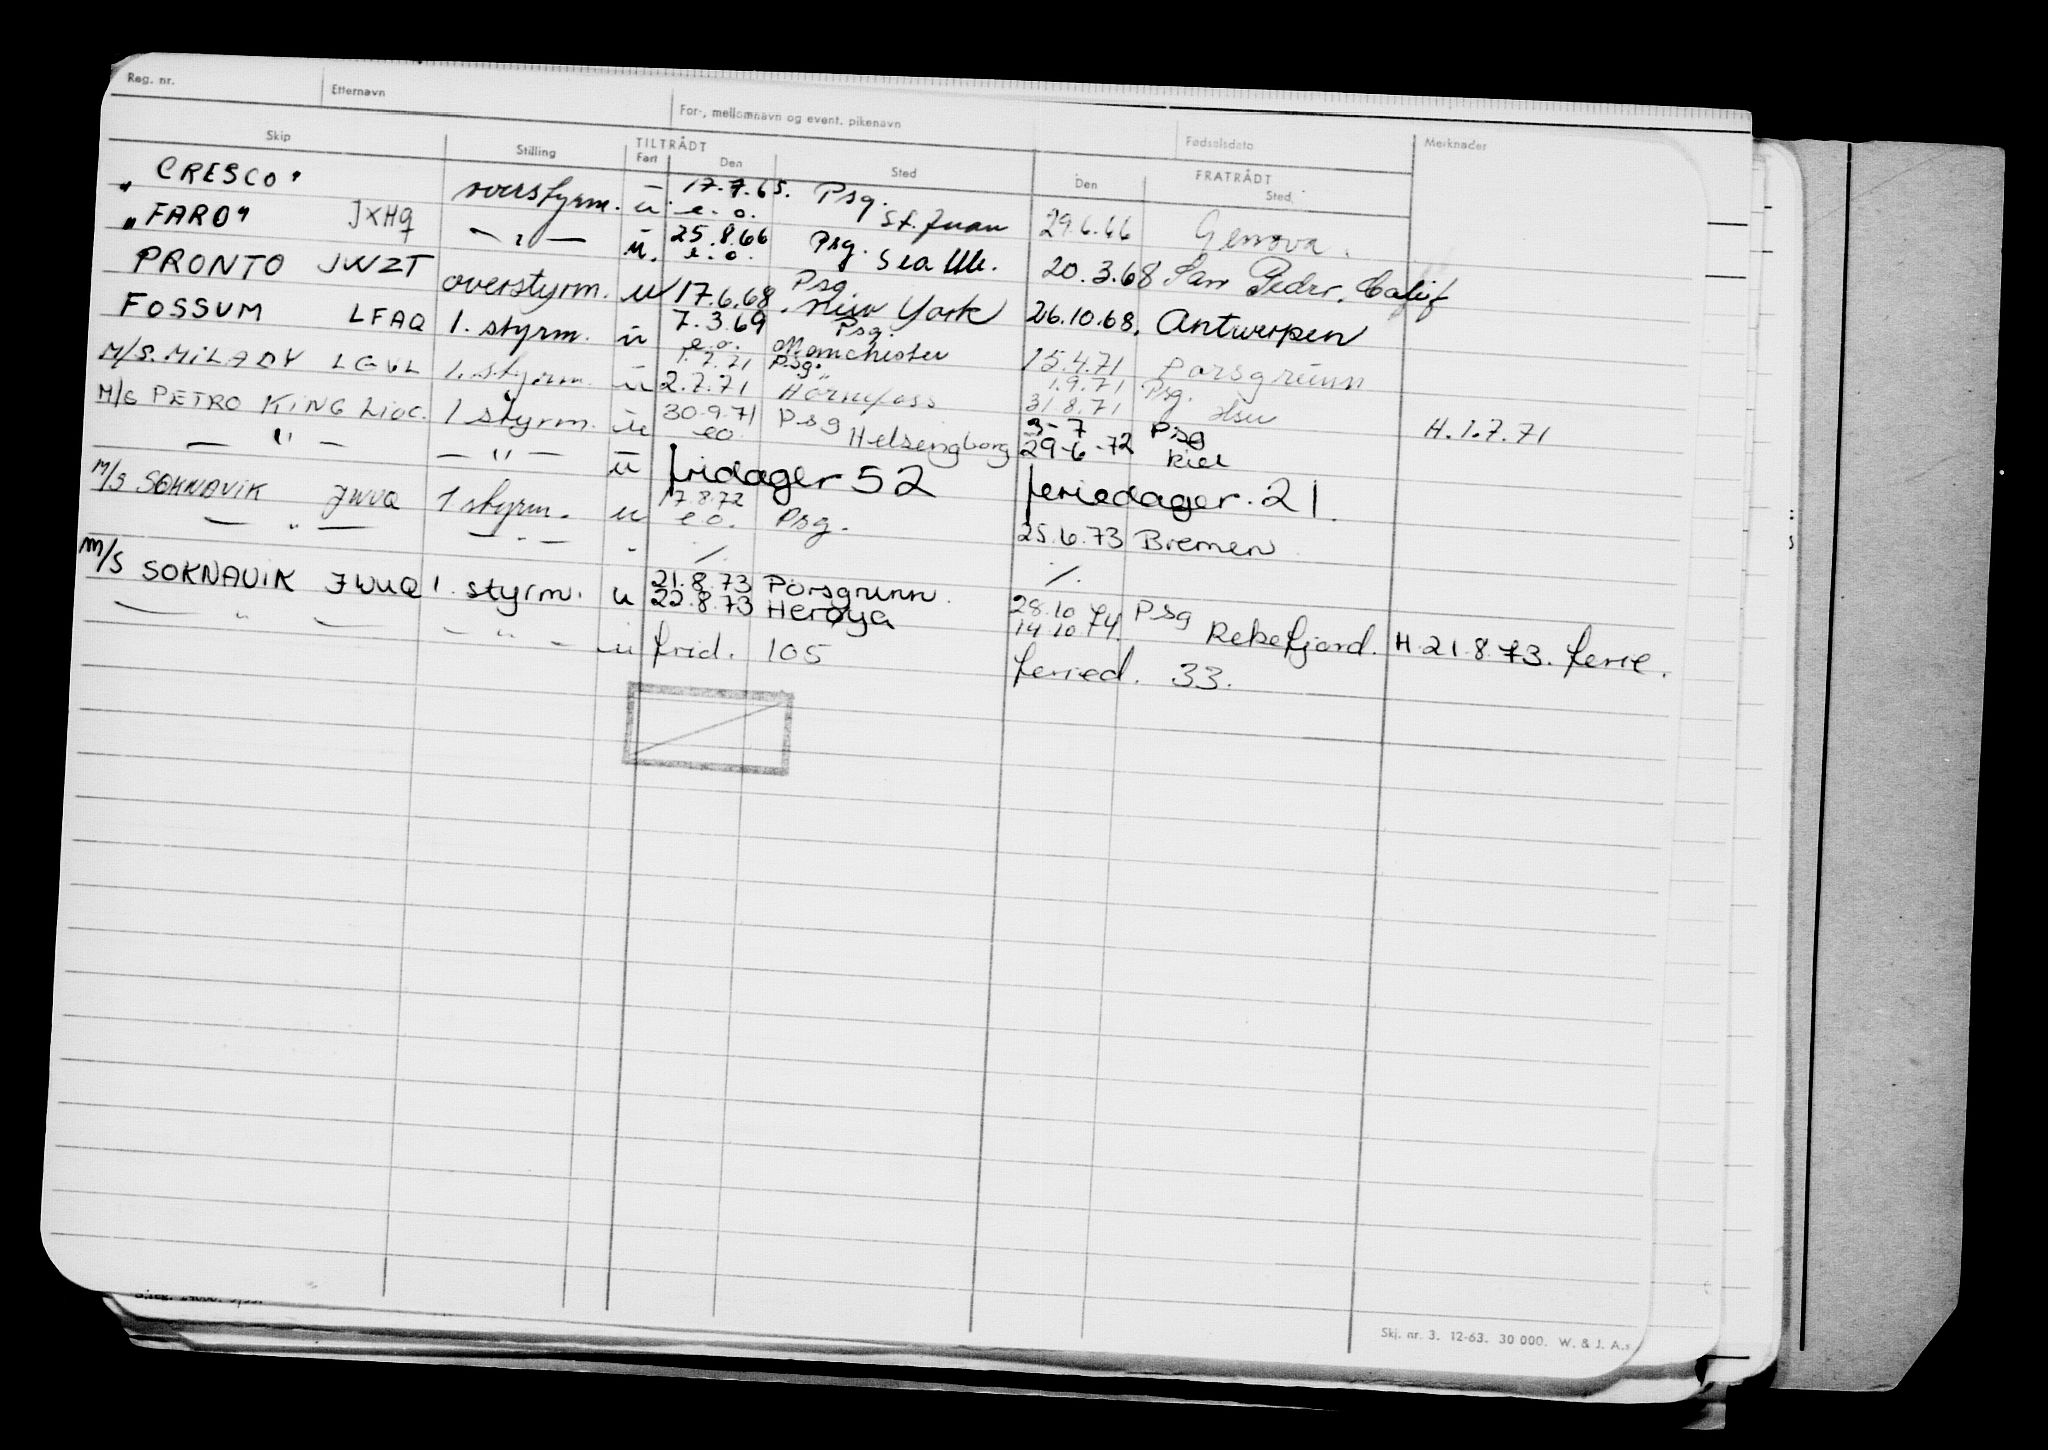 Reg. nr. Etternavn For-, mellomnavn og event. pikenavn Fødselsdato Merknader
Skip Stilling TILTRÅDT Fart Den Sted Den FRATRÅDT Sted
"CRESCO" overstyrm. u 17.7.65. e.o. Psg. St. Juan 29.6.66 Genova.
"FARO" JXHQ — " — u. 25.8.66 e.o. Psg. Seattle. 20.3.68 San Pedro, Calif
PRONTO JWZT overstyrm. u 17.6.68. Psg. New York 26.10.68. Antwerpen
FOSSUM LFAQ 1. styrm. u 7.3.69 e.o. Psg. Manchester 15.4.71 Porsgrunn
M/S. MILADY LGVL 1. styrm. u 1.7.71 2.7.71 Psg. Hörnefoss 1.9.71 31.8.71 Psg. H. 1.7.71
M/S PETRO KING 1 styrm. u 30.9.71 eo Psg Helsingborg 3-7 29-6-72 Psg Kiel
— " — — " — u fridager 52 feriedager. 21.
M/S SOKNAVIK JWUQ 1 styrm. u 17.8.72 e.o. Psg. 25.6.73 Bremen
— " — — " — - /. /.
M/S SOKNAVIK JWUQ 1. styrm. u 21.8.73 22.8.73 Porsgrunn. Herøya 28.10 14.10 74. Psg Rekefjord. H. 21.8.73. ferie.
— " — — " — u frid. 105 feried. 33.
Skj. nr. 3. 12-63. 30 000. W. & J. A.s